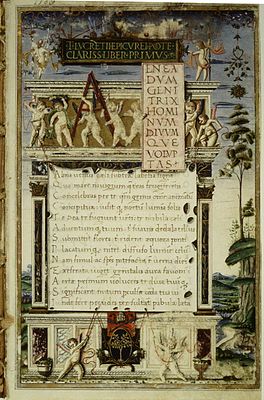 T·LVCRETII·EPICVREI·POETE
CLARISS·LIBER·PRIMVS·
A
ENEA
DVM
GENI
TRIX
HOMI
NVM
DIVVM
QVE
VOLVP
TAS
Alma uenus celi subter labentia signa
Que mare nauigerum que terras frugiferentis
Concelebras per te quoniam genus omne animantum
Concipitur uisitque exortum lumina solis
Te dea te fugiunt uenti te nubila celi
Aduentumque tuum tibi suauis dedala tellus
Submittit flores tibi rident aequora ponti
Placatumque nitet diffuso lumine celum
Nam simul ac species patefacta est uerna diei
Et reserata uiget genitalis aura fauoni
Aerie primum uolucres te diua tuumque
Significant initum perculse corda tua ui
Inde fere pecudes persultant pabula leta